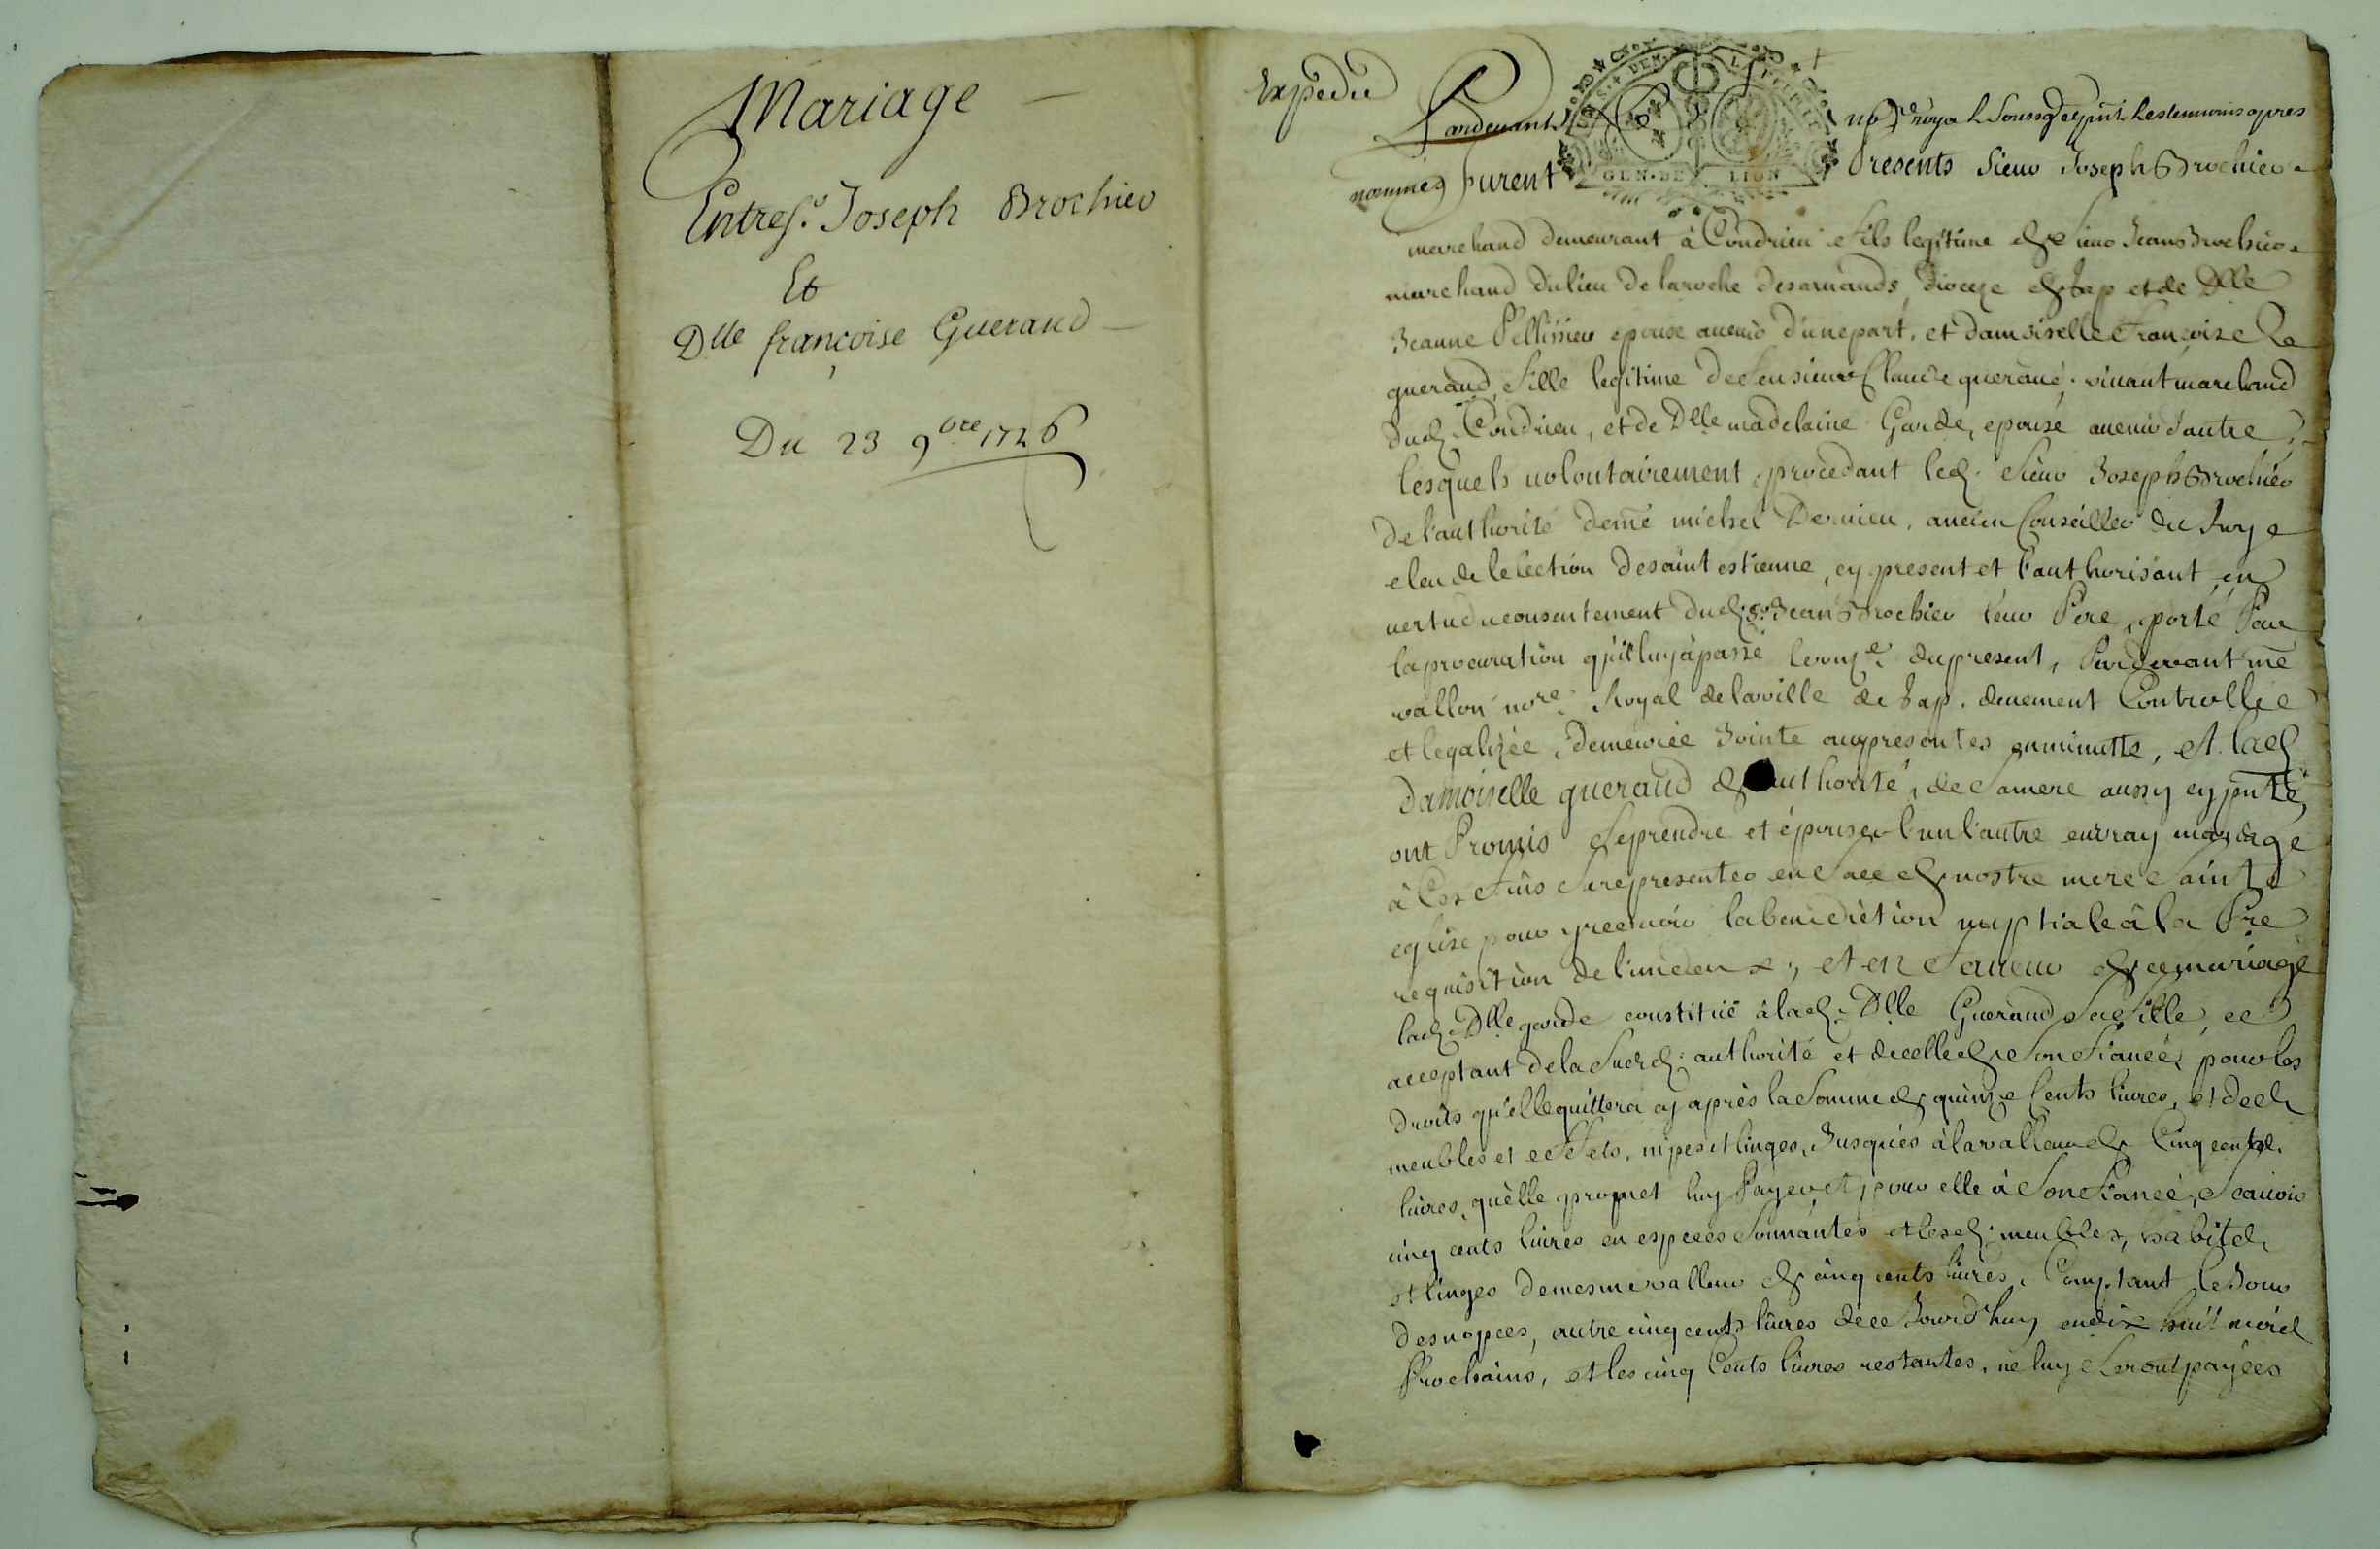 Mariage
Entre s.r Joseph Brochier
Et
Dlle françoise Gueraud
Du 23 9bre 1726
Expedié
Pardevant no.re royal soussé et pnt les temoins apres
nommes furent presents Sieur Joseph Brochier
marchand demeurant à Condrieu fils legitime de Sieur Jean Brochier
marchand du lieu de laroche desarnauds, dioceze de Gap et de Dlle
Jeanne Pellissier epouse avenir d'une part, et damoiselle Françoize
gueraud, fille legitime de feu sieur Claude gueraud, vivant marchand
dud. Condrieu, et de Dlle madelaine Garde, epouse avenir d'autre,
lesquels volontairement, procedant led. Sieur Joseph Brochier
de l'authorité de me michel Dervieu, ancien Conseiller du Roy
eleu de lelection de saint estienne, cy present et l'authorisant, en
vertu du consentement dud. sr. Jean Brochier leur Pere, porté Par
la procuration qu'il luy à passé le du present, Pardevant me
vallon nore. Royal de la ville de Gap, deuement Controllée
et legalizée, demeurée Jointe aux presentes en minutte, et lad.
damoiselle gueraud de authorité, de sa mere aussy cy pnte,
ont Promis se prendre et épouser l'un l'autre en vray mariage
à Ces fins se representer en face de nostre mere sainte
eglise pour y recevoir la benediction nuptiale à la Pre
requisition de l'un deux; et en faveur de ce mariage
lad. Dlle garde constitue à lad. Dlle Gueraud sa fille, ce
acceptant de la susd. authorité et de celle de son fiancé, pour les
droits qu'elle quittera cy après la somme de quinze Cents livres, et de
meubles et effets, nipes et linges, Jusques à la valleur de Cinq cents
livres, qu'elle promet luy Payer et pour elle à son fiancé, scavoir
cinq cents livres en especes sonnantes et lesd. meubles, habits
et linges de mesme valleur de cinq cents livres, Comptant le Jour
des nopces, autre cinq cents livres de ce Jourd'huy en dix huit mois
Prochains, et les cinq Cents livres restantes, ne luy seront payées
GEN. DE LION